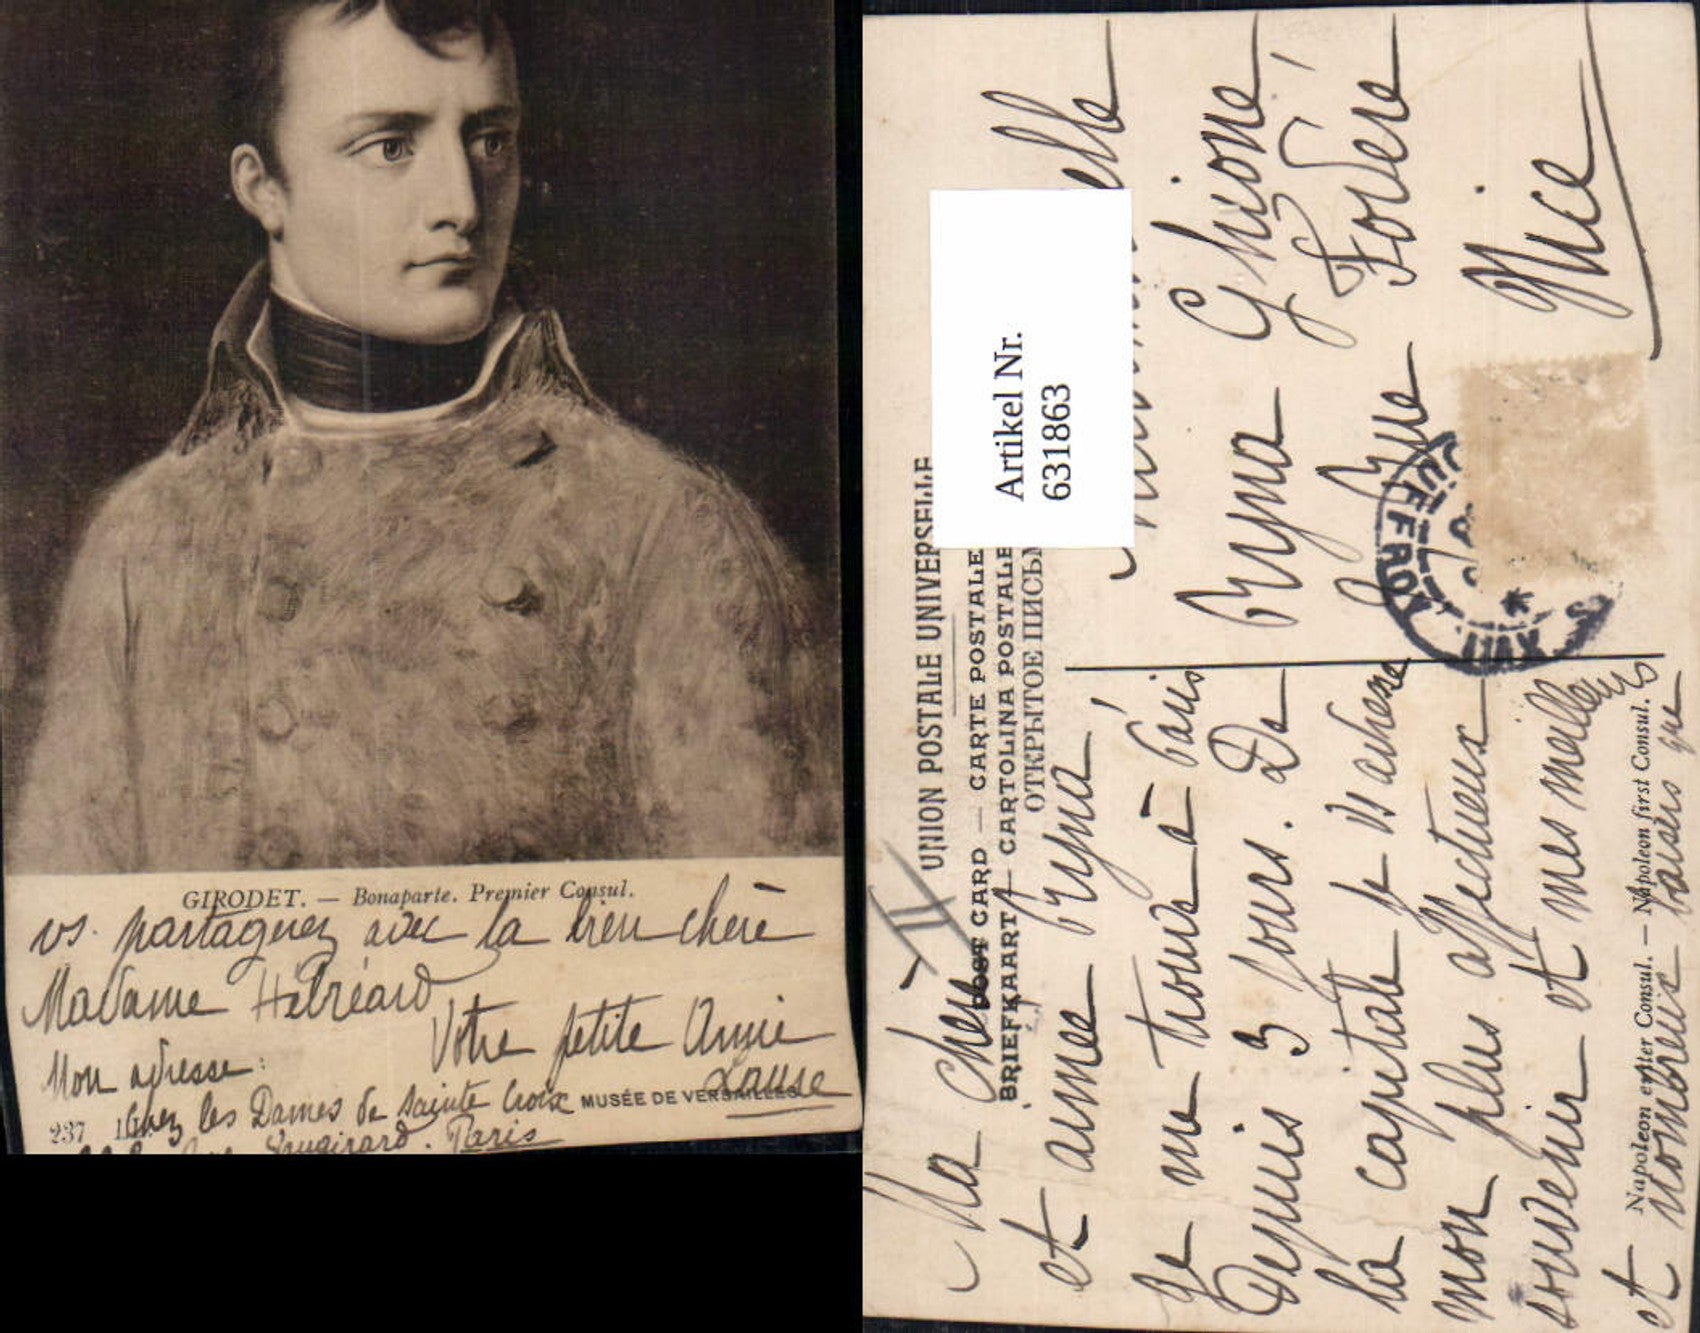 GIRODET. — Bonaparte. Premier Consul.
vs. partagerez avec la bien chère
Madame Hébréard
Votre petite Amie
Mon adresse:
Chez les Dames de Sainte Croix
MUSÉE DE VERSAILLES
237
Vaugirard. Paris
UNION POSTALE UNIVERSELLE
POST CARD — CARTE POSTALE
BRIEFKAART — CARTOLINA POSTALE
ОТКРЫТОЕ ПИСЬМ
Artikel Nr.
631863
Ma chère
et aimée Bryna
Je me trouve à Paris
Depuis 3 jours. De
la capitale je vs adresse
mon plus affectueux
souvenir et mes meilleurs
et nombreux baisers que
Napoleon erster Consul. — Napoleon first Consul.
elle
Bryna Ghione
Rue Foderé
Nice
JOUFFROY
XVII